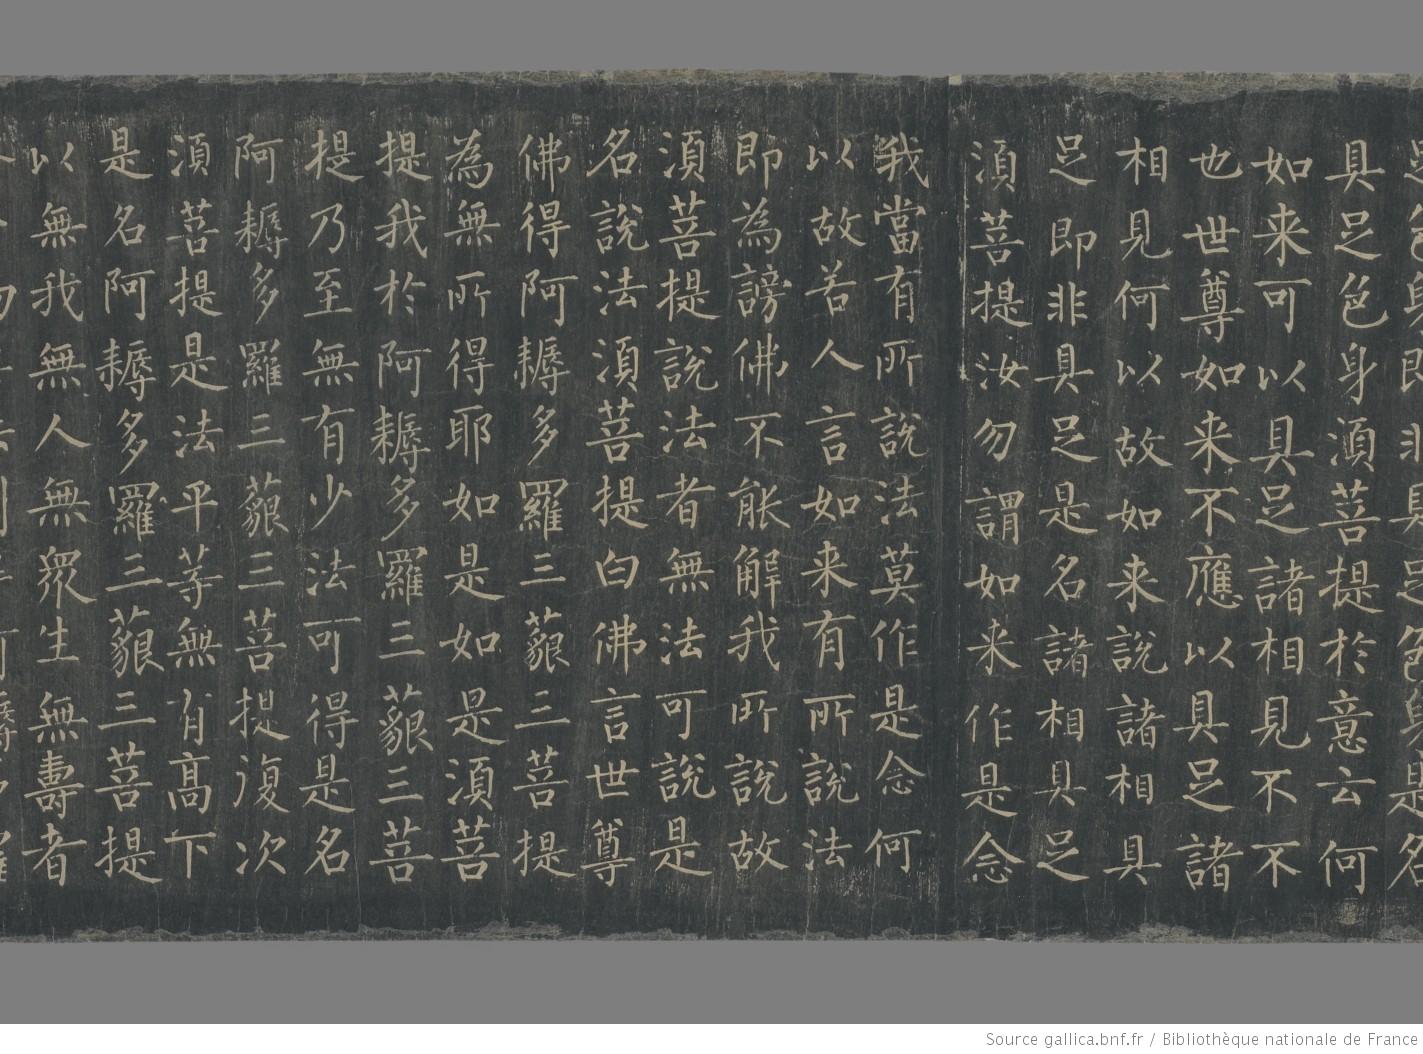 色身即非具足色身是名
具足色身湏菩提於意云何
如来可以具足諸相見不不
也世尊如来不應以具足諸
相見何以故如来說諸相具
足即非具足是名諸相具足
湏菩提汝勿謂如来作是念
我當有所說法莫作是念何
以故若人言如来有所說法
即為謗佛不能解我所說故
湏菩提說法者無法可說是
名說法湏菩提白佛言世尊
佛得阿耨多羅三藐三菩提
為無所得耶如是如是湏菩
提我於阿耨多羅三藐三菩
提乃至無有少法可得是名
阿耨多羅三藐三菩提復次
湏菩提是法平等無有高下
是名阿耨多羅三藐三菩提
以無我無人無眾生無壽者
Source gallica.bnf.fr / Bibliothèque nationale de France